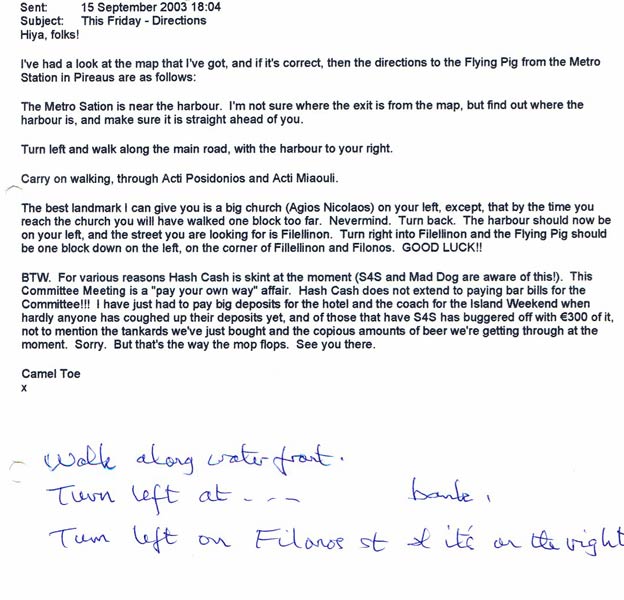 Sent: 15 September 2003 18:04
Subject: This Friday - Directions
Hiya, folks!
I've had a look at the map that I've got, and if it's correct, then the directions to the Flying Pig from the Metro
Station in Pireaus are as follows:
The Metro Sation is near the harbour. I'm not sure where the exit is from the map, but find out where the
harbour is, and make sure it is straight ahead of you.
Turn left and walk along the main road, with the harbour to your right.
Carry on walking, through Acti Posidonios and Acti Miaouli.
The best landmark I can give you is a big church (Agios Nicolaos) on your left, except, that by the time you
reach the church you will have walked one block too far. Nevermind. Turn back. The harbour should now be
on your left, and the street you are looking for is Filellinon. Turn right into Filellinon and the Flying Pig should
be one block down on the left, on the corner of Fillellinon and Filonos. GOOD LUCK!!
BTW. For various reasons Hash Cash is skint at the moment (S4S and Mad Dog are aware of this!). This
Committee Meeting is a "pay your own way" affair. Hash Cash does not extend to paying bar bills for the
Committee!!! I have just had to pay big deposits for the hotel and the coach for the Island Weekend when
hardly anyone has coughed up their deposits yet, and of those that have S4S has buggered off with €300 of it,
not to mention the tankards we've just bought and the copious amounts of beer we're getting through at the
moment. Sorry. But that's the way the mop flops. See you there.
Camel Toe
x
Walk along water front.
Turn left at - - - bank.
Turn left on Filonos st & it's on the right